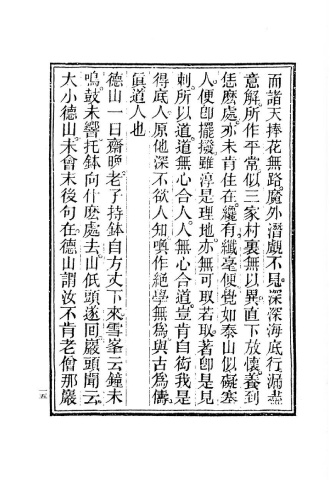 而諸天捧花無路魔外潛覷不見深深海底行漏盡
意解所作平常似三家村裏無以異直下放懷養到
恁麽處亦未肯住在纔有纖毫便覺如泰山似礙塞
人便卽擺撥雖淳是理地亦無可取若取著卽是見
刺所以道道無心合人人無心合道豈肯自衒我是
得底人原他深不欲人知喚作絕學無爲與古爲儔
眞道人也
德山一日齋晚老子持鉢自方丈下來雪峯云鐘未
鳴鼓未響托鉢向什麽處去山低頭遂回巖頭聞云
大小德山未會末後句在德山謂汝不肯老僧那巖
一五